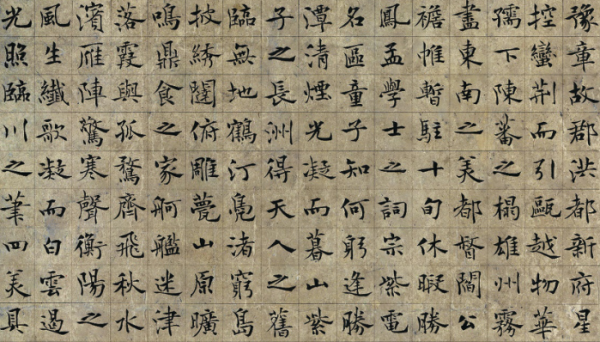 豫章故郡洪都新府星
控蠻荆而引甌越物華
孺下陳蕃之榻雄州霧
盡東南之美都督閻公
襜帷暫駐十旬休暇勝
鳳孟學士之詞宗紫電
名區童子知何躬逢勝
潭清煙光凝而暮山紫
子之長洲得天人之舊
臨無地鶴汀鳧渚窮島
披綉闥俯雕甍山原曠
鳴鼎食之家舸艦迷津
落霞與孤鶩齊飛秋水
濱雁陣驚寒聲衡陽之
風生纖歌凝而白雲過
光照臨川之筆四美具